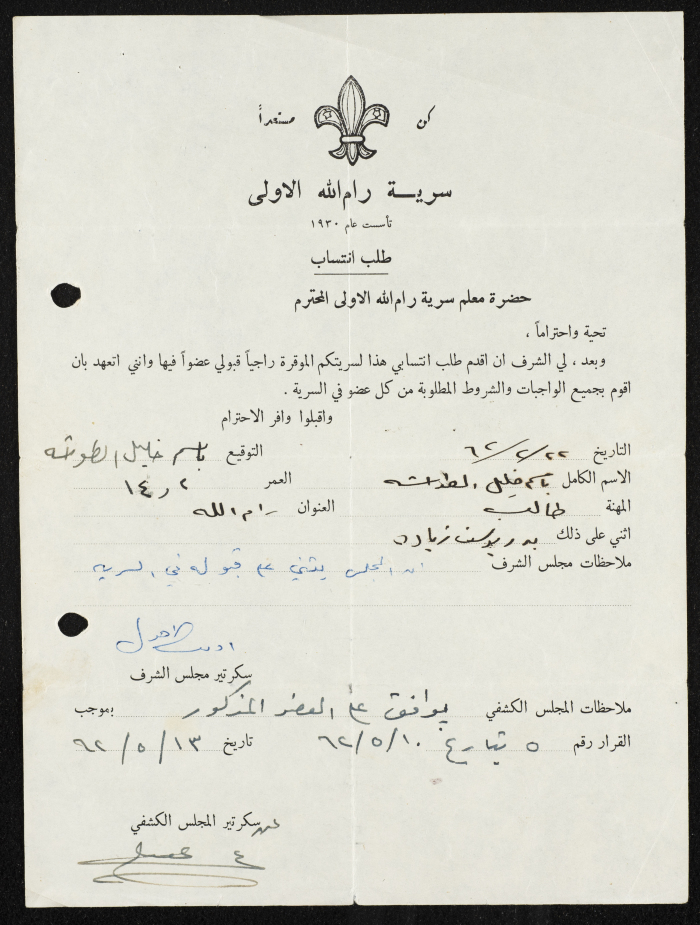 كن مستعداً
سرية رام الله الاولى
تأسست عام ١٩٣٠
طلب انتساب
حضرة معلم سرية رام الله الاولى المحترم
تحية واحتراماً ،
وبعد ، لي الشرف ان اقدم طلب انتسابي هذا لسريتكم الموقرة راجياً قبولي عضواً فيها وانني اتعهد بان
اقوم بجميع الواجبات والشروط المطلوبة من كل عضو في السرية .
واقبلوا وافر الاحترام
التاريخ ٢٢/٢/٦٢ التوقيع باسم خليل الطوشه
الاسم الكامل باسم خليل الطوشه العمر ١٤٫٢
المهنة طالب العنوان رام الله
اثني على ذلك بدر يوسف زياده
ملاحظات مجلس الشرف ان المجلس يثني على قبوله في السريه
سكرتير مجلس الشرف
ملاحظات المجلس الكشفي يوافق على العضو المذكور بموجب
القرار رقم ٥ بتاريخ ٦٢/٥/١٠ تاريخ ٦٢/٥/١٣
عن سكرتير المجلس الكشفي